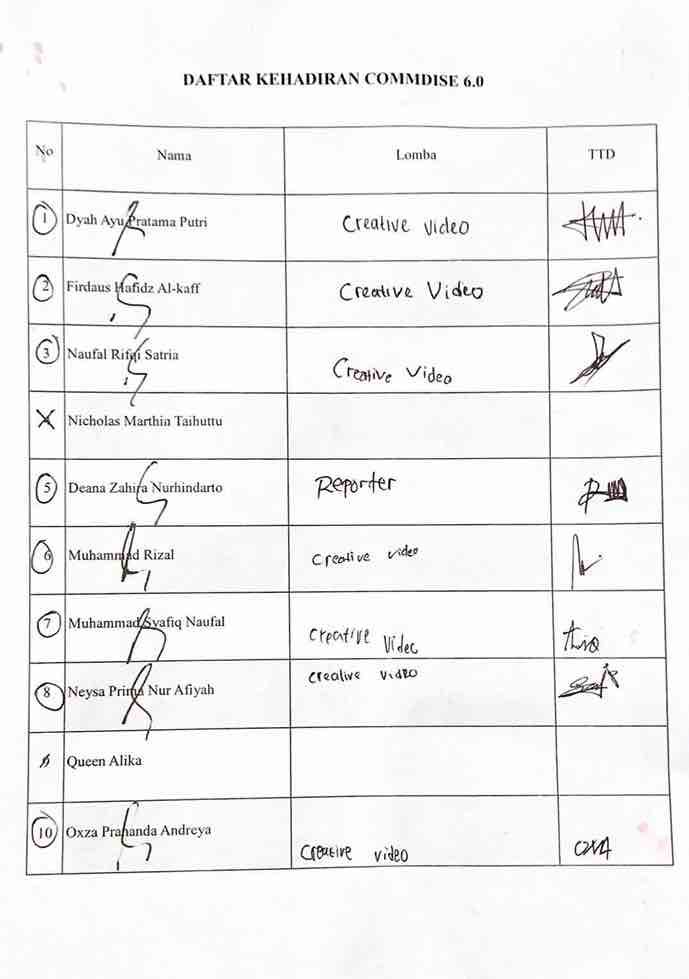 DAFTAR KEHADIRAN COMMDISE 6.0
No Nama Lomba TTD
1 Dyah Ayu Pratama Putri Creative Video
2 Firdaus Hafidz Al-kaff Creative Video
3 Naufal Rifqi Satria Creative Video
4 Nicholas Marthin Taihuttu
5 Deana Zahira Nurhindarto Reporter
6 Muhammad Rizal Creative video
7 Muhammad Syafiq Naufal Creative Video
8 Neysa Prima Nur Afiyah Creative VIDEO
Queen Alika
10 Oxza Prananda Andreya Creative video